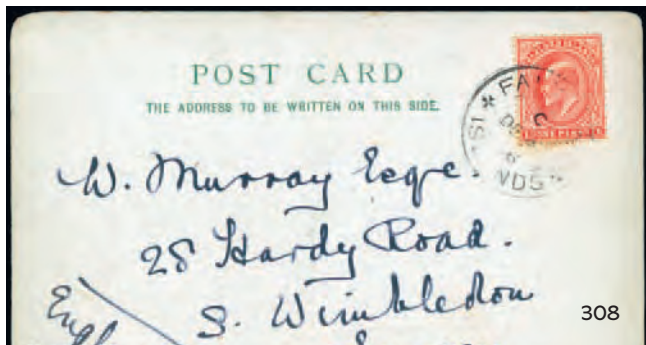 POST CARD
THE ADDRESS TO BE WRITTEN ON THIS SIDE.
W. Murray Esqre.
28 Hardy Road.
S. Wimbledon
308